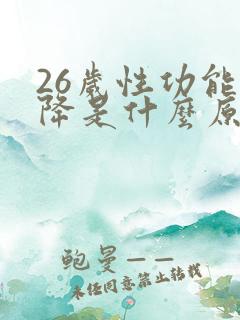 26歲性功能
降是什麼原
鲍曼——
未经同意禁止转载